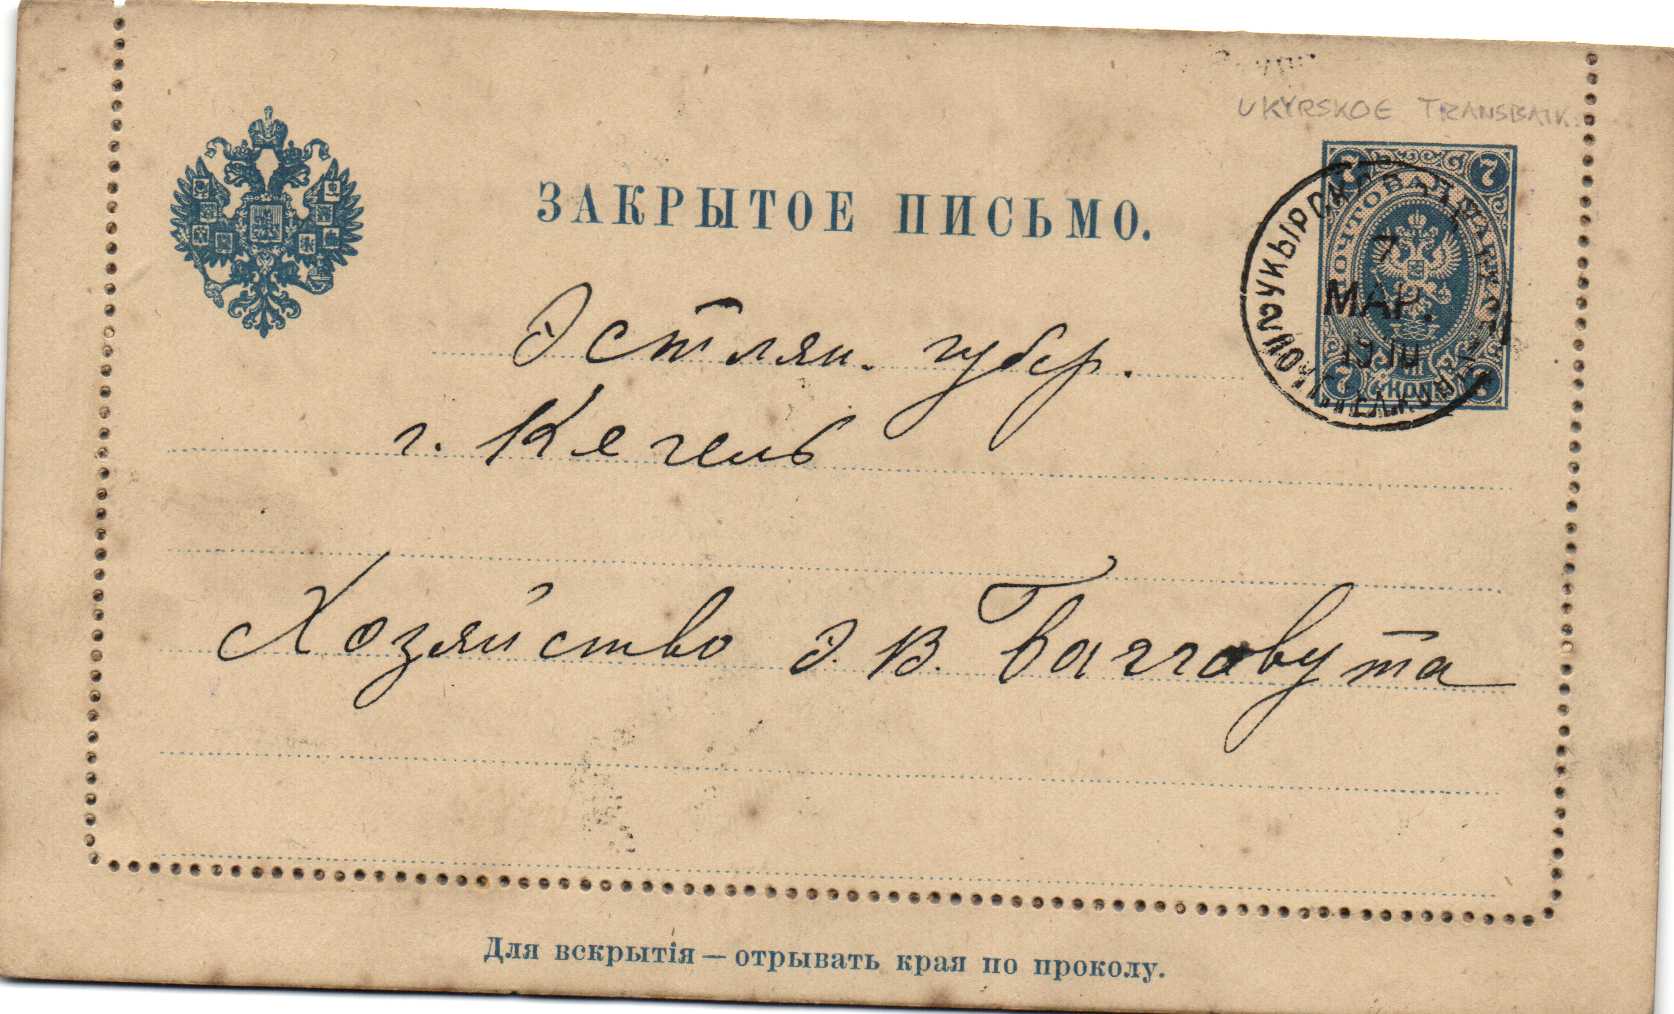 UKYRSKOE TRANSBAIK.
ЗАКРЫТОЕ ПИСЬМО.
7 7
ПОЧТОВАЯ МАРКА
УКЫРСКОЕ
7
МАР.
1910
7 КОП. 7
Эстлян. губер.
г. Кегель
Хозяйство Э. В. Баггговута
Для вскрытія — отрывать края по проколу.